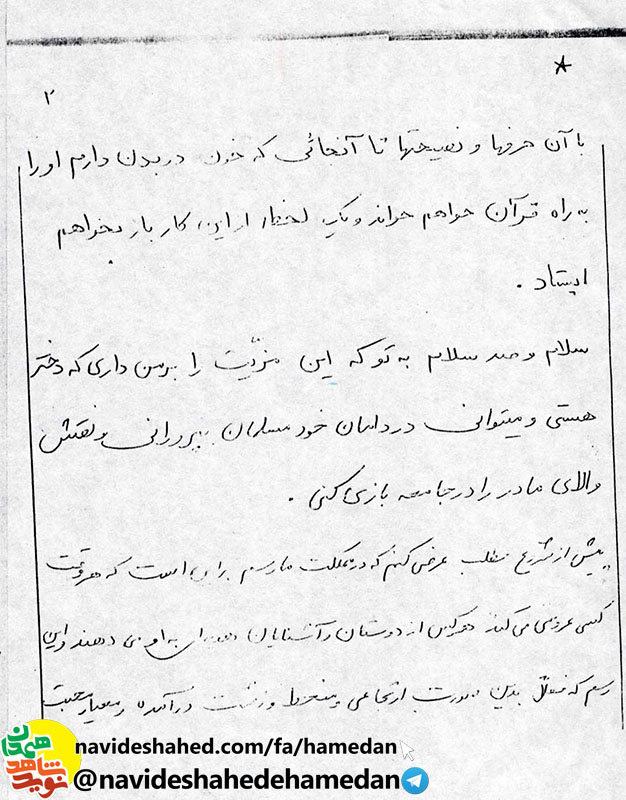 ۲
با آن حرفها و نصیحتها تا آنجائی که خون در بدن دارم او را
به راه قرآن خواهم خواند و یک لحظه از این کار باز نخواهم
ایستاد .
سلام و صد سلام به تو که این مزیّت را بر من داری که دختر
هستی و میتوانی در دامان خود مسلمان بپرورانی و نقش
والای مادر را در جامعه بازی کنی .
پیش از شروع مطلب عرض کنم که در مملکت ما رسم بر این است که هر وقت
کسی عروسی می کند هر کس از دوستان و آشنایان هدیه ای به او می دهند و این
رسم که فعلاً بدین صورت ارتجاعی و منحط و زشت درآمده و معیار محبت
نوید شاهد همدان
navideshahed.com/fa/hamedan
@navideshahedehamedan